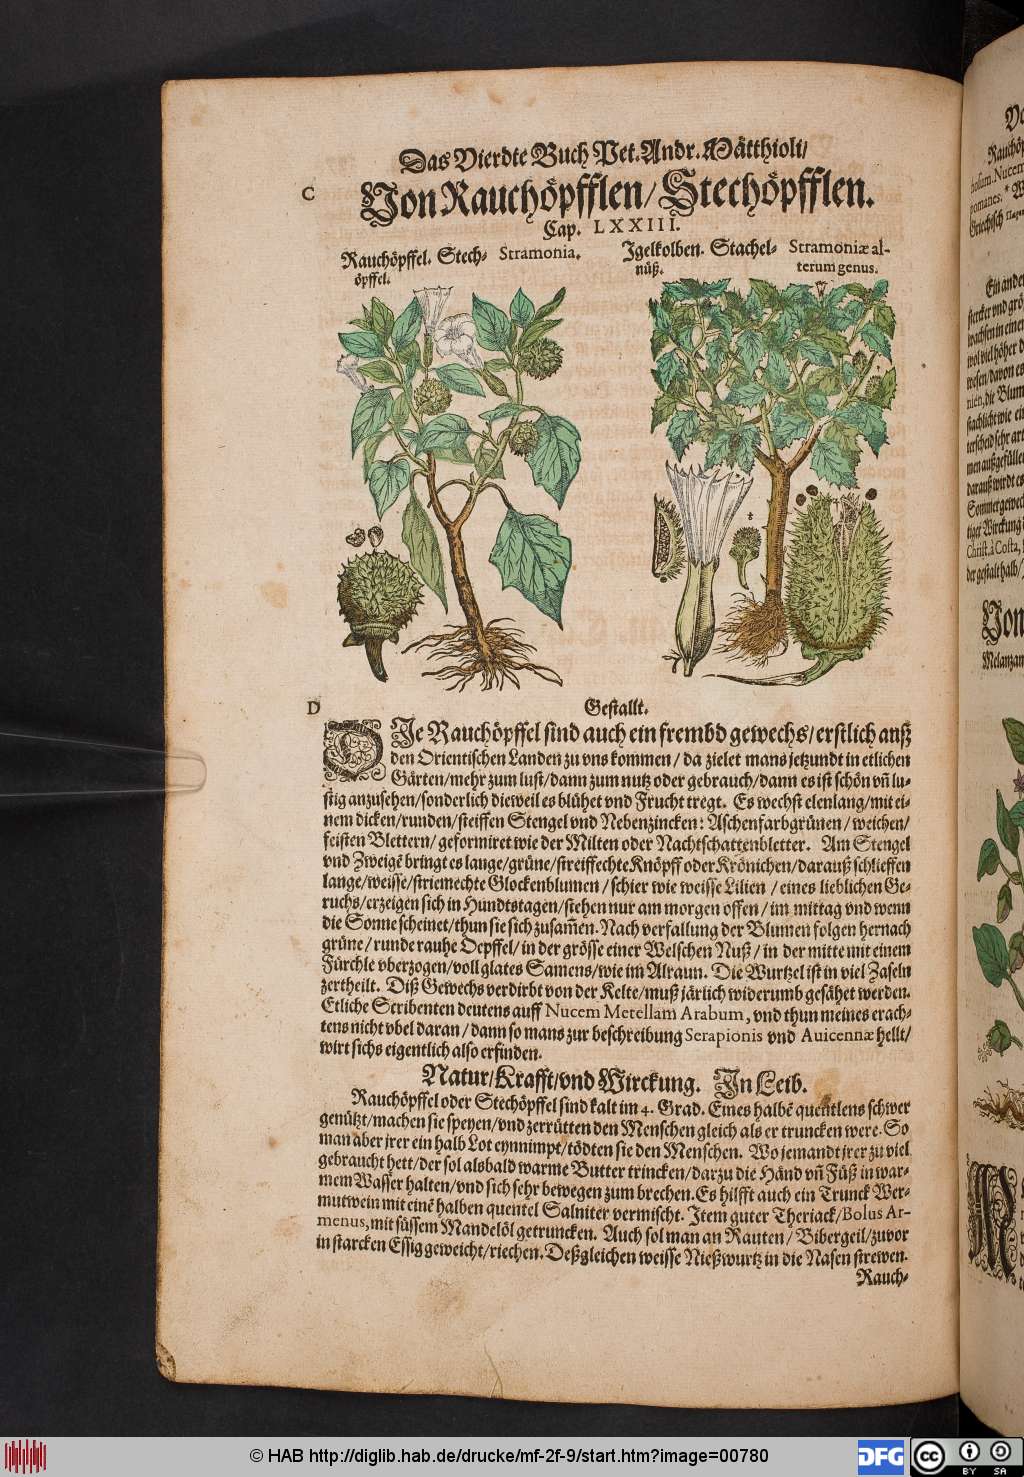 Das Vierdte Buch Pet. Andr. Matthioli/
C
Von Rauchöpfflen/ Stechöpfflen.
Cap. LXXIII.
Rauchöpffel. Stech- Stramonia.
öpffel.
Igelkolben. Stachel- Stramoniæ al-
nüß. terum genus.
D
Gestallt.
DIe Rauchöpffel sind auch ein frembd gewechs/ erstlich auß
den Orientischen Landen zu vns kommen/ da zielet mans jetzundt in etlichen
Gärten/ mehr zum lust/ dann zum nutz oder gebrauch/ dann es ist schön vñ lu-
stig anzusehen/ sonderlich dieweil es blühet vnd Frucht tregt. Es wechst elenlang/ mit ei-
nem dicken/ runden/ steiffen Stengel vnd Nebenzincken: Aschenfarbgrünen/ weichen/
feisten Blettern/ geformiret wie der Milten oder Nachtschattenbletter. Am Stengel
vnd Zweigẽ bringt es lange/ grüne/ streiffechte Knöpff oder Krönichen/ darauß schlieffen
lange/ weisse/ striemechte Glockenblumen/ schier wie weisse Lilien/ eines lieblichen Ge-
ruchs/ erzeigen sich in Hundtstagen/ stehen nur am morgen offen/ im mittag vnd wenn
die Sonne scheinet/ thun sie sich zusam̃en. Nach verfallung der Blumen folgen hernach
grüne/ runde rauhe Oepffel/ in der grösse einer Welschen Nuß/ in der mitte mit einem
Fürchle vberzogen/ voll glates Samens/ wie im Alraun. Die Wurtzel ist in viel Zaseln
zertheilt. Diß Gewechs verdirbt von der Kelte/ muß järlich widerumb gesähet werden.
Etliche Scribenten deutens auff Nucem Metellam Arabum, vnd thun meines erach-
tens nicht vbel daran/ dann so mans zur beschreibung Serapionis vnd Auicennæ hellt/
wirt sichs eigentlich also erfinden.
Natur/ Krafft/ vnd Wirckung. In Leib.
Rauchöpffel oder Stechöpffel sind kalt im 4. Grad. Eines halbẽ quentlens schwer
genützt/ machen sie speyen/ vnd zerrütten den Menschen gleich als er truncken were. So
man aber jrer ein halb Lot eynnimpt/ tödten sie den Menschen. Wo jemandt jrer zu viel
gebraucht hett/ der sol alsbald warme Butter trincken/ darzu die Händ vñ Füß in war-
mem Wasser halten/ vnd sich sehr bewegen zum brechen. Es hilfft auch ein Trunck Wer-
mutwein mit einẽ halben quentel Salniter vermischt. Item guter Theriack/ Bolus Ar-
menus, mit süssem Mandelöl getruncken. Auch sol man an Rauten/ Bibergeil/ zuvor
in starcken Essig geweicht/ riechen. Deßgleichen weisse Nießwurtz in die Nasen strewen.
Rauch-
© HAB http://diglib.hab.de/drucke/mf-2f-9/start.htm?image=00780
DFG
cc
BY SA